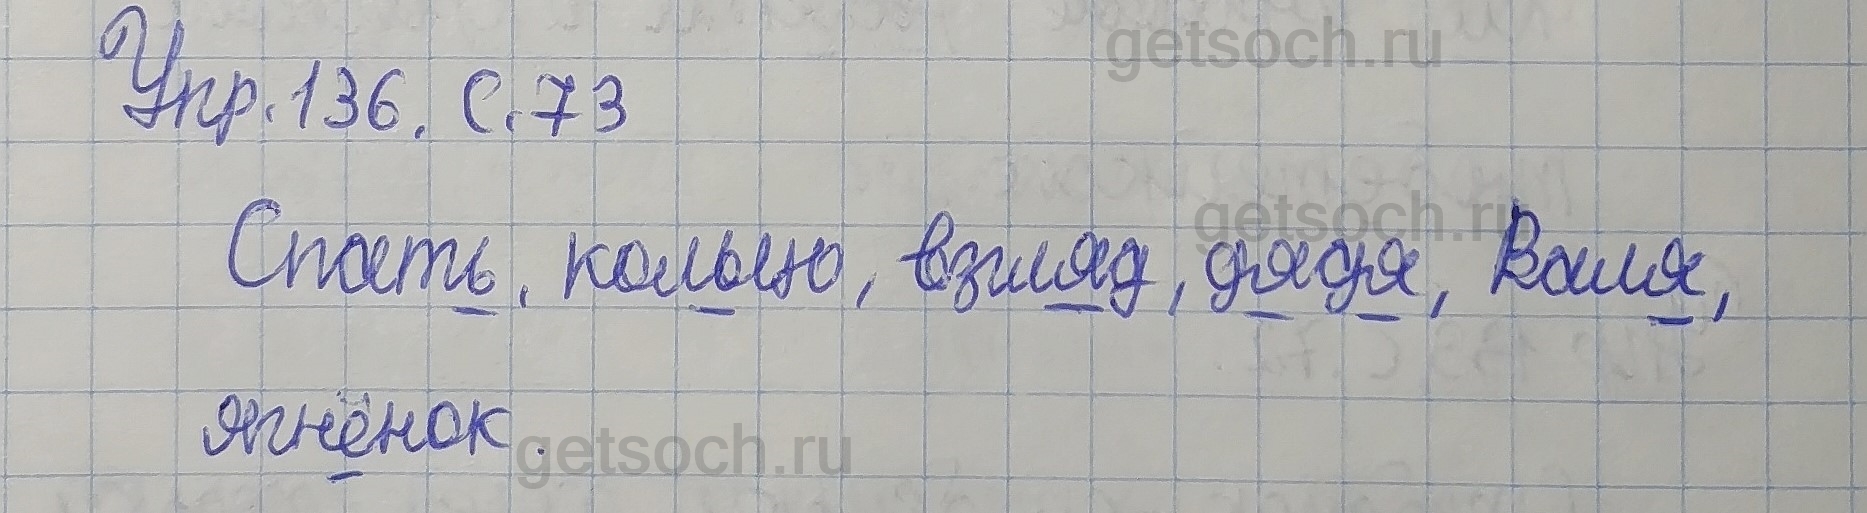 getsoch.ru
Упр. 136. С. 73
getsoch.ru
Спать, кольцо, взгляд, дядя, Валя,
ягнёнок.
getsoch.ru